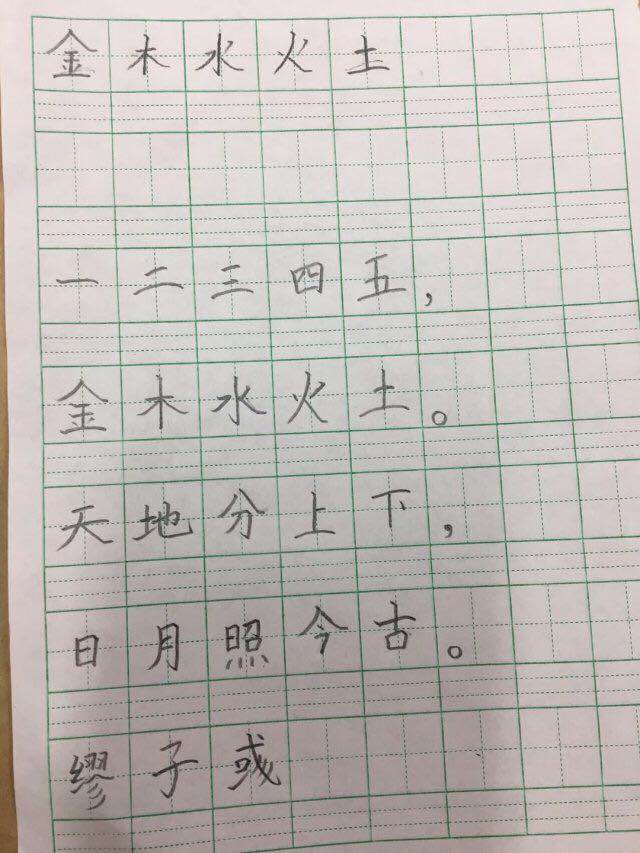 金木水火土
一二三四五,
金木水火土。
天地分上下,
日月照今古。
缪子彧